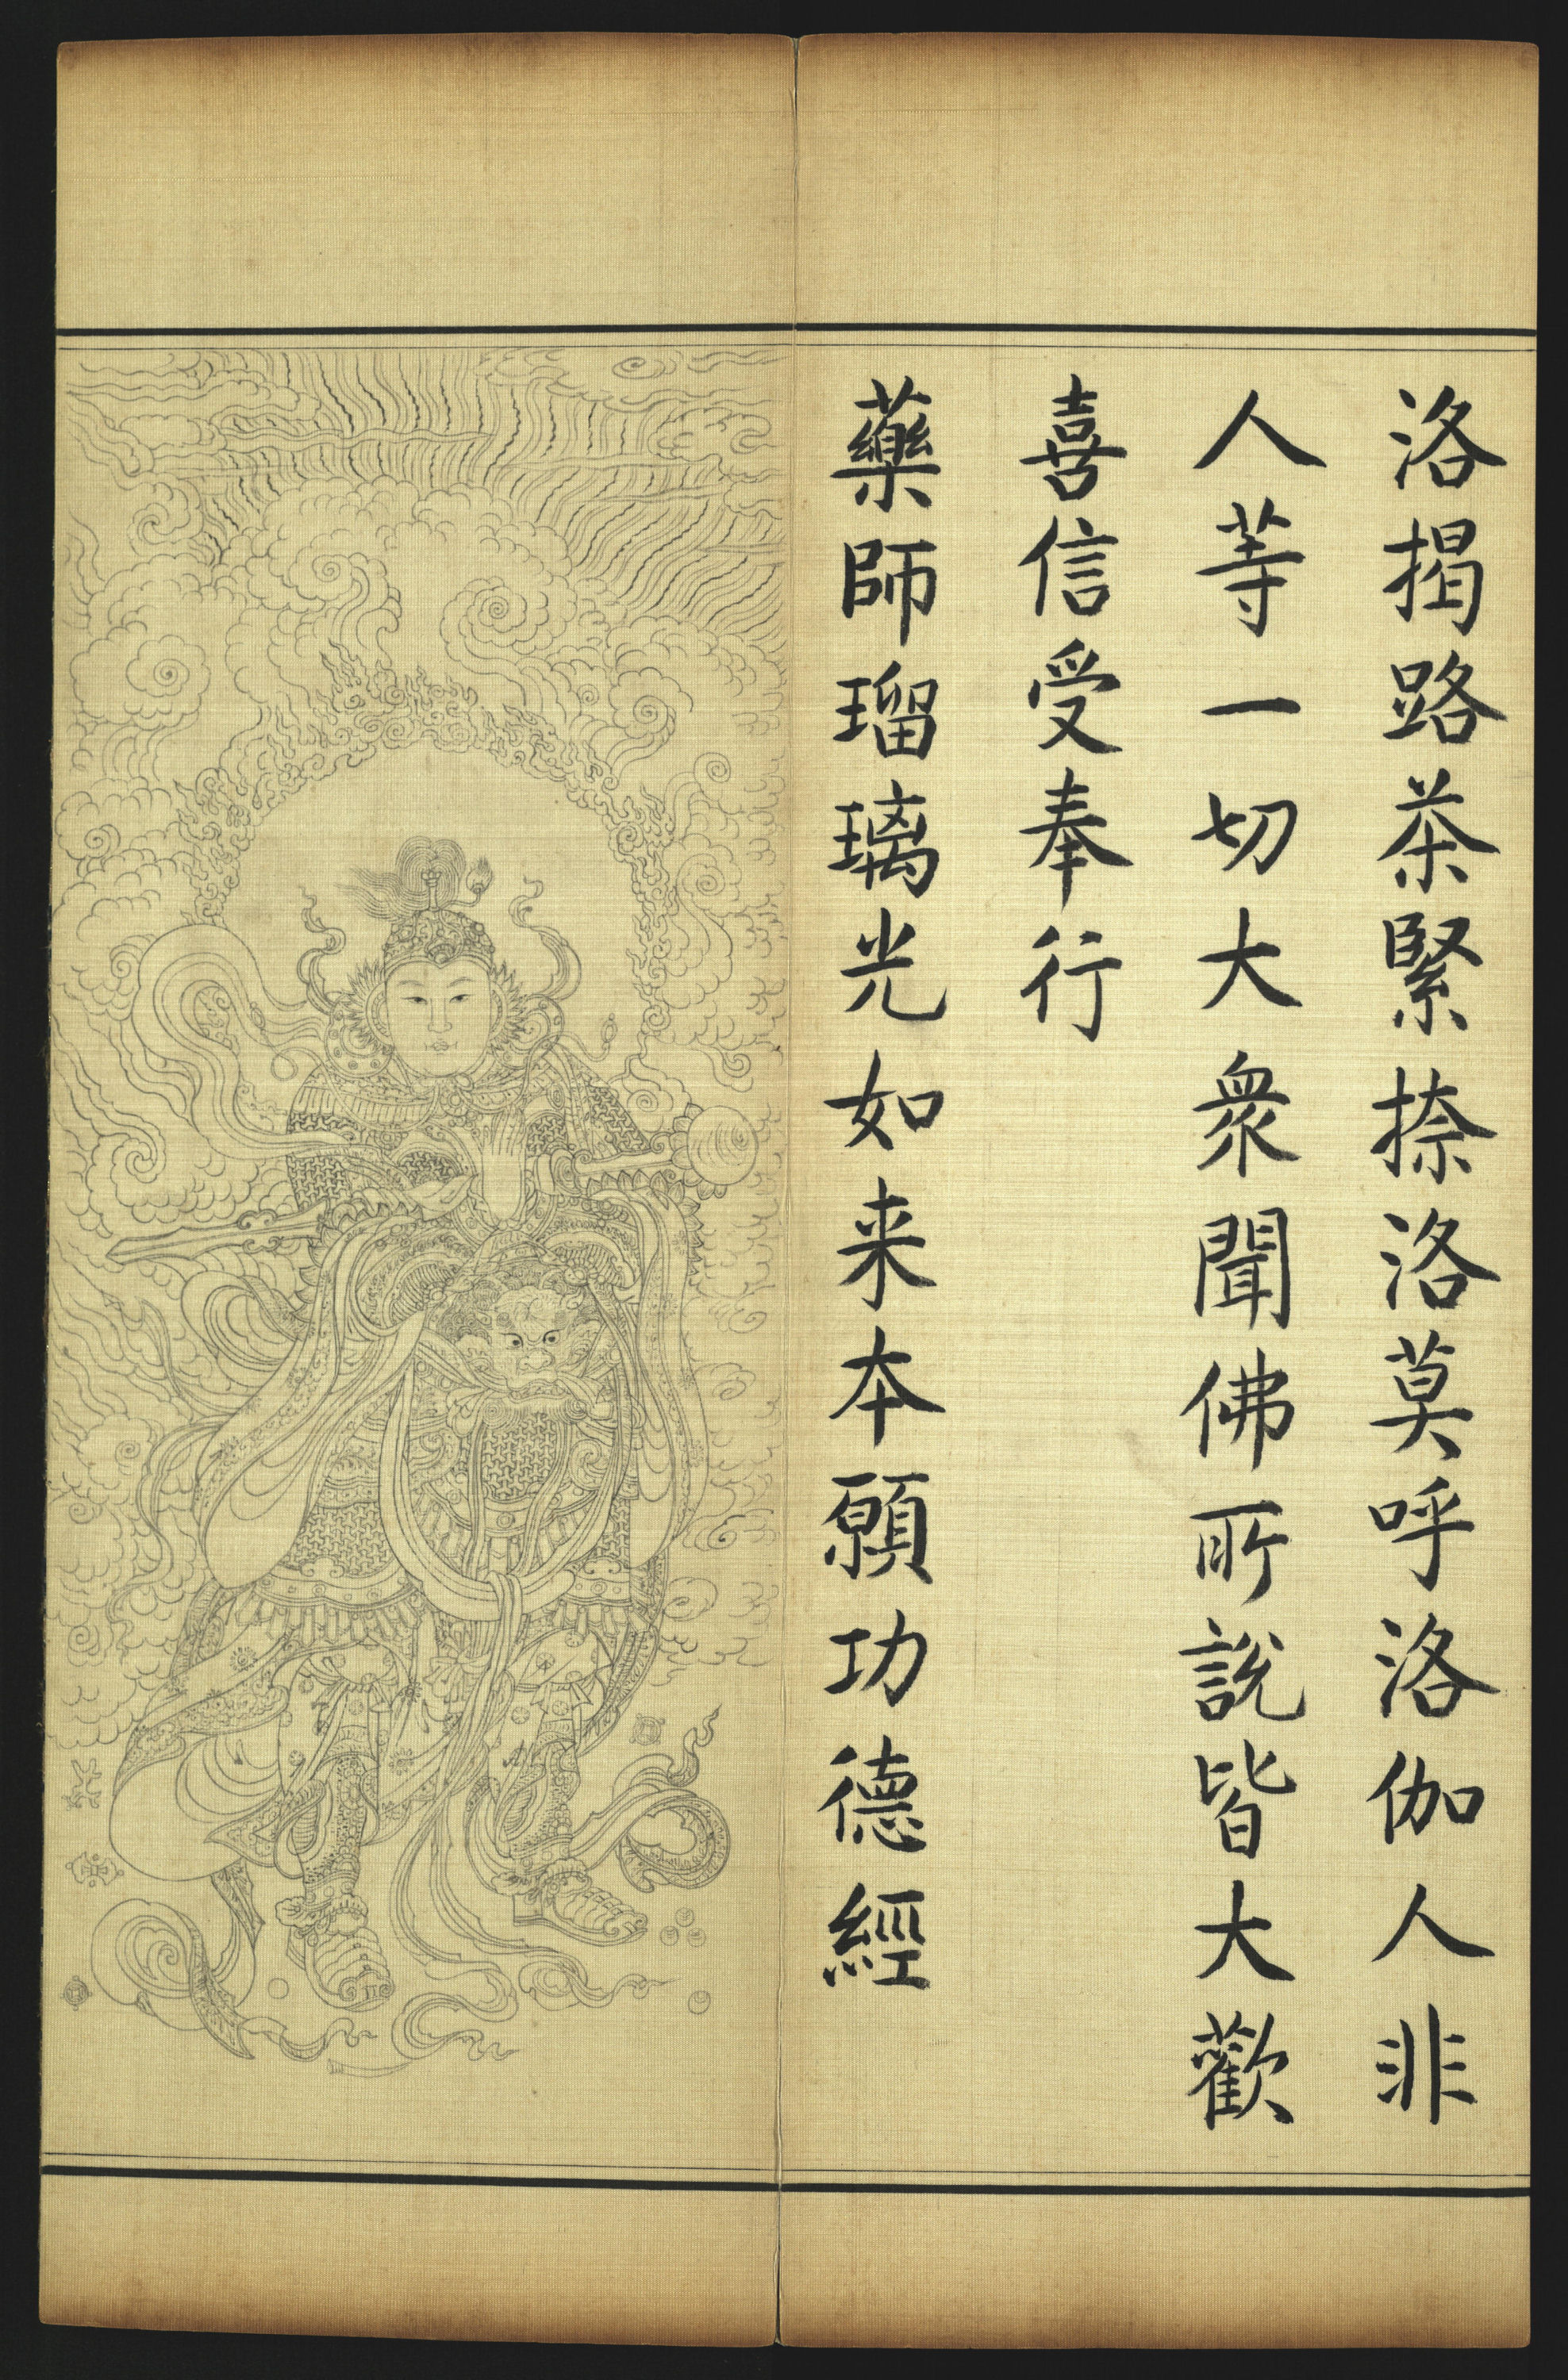 洛揭路荼緊捺洛莫呼洛伽人非
人等一切大衆聞佛所說皆大歡
喜信受奉行
藥師瑠璃光如来本願功德經